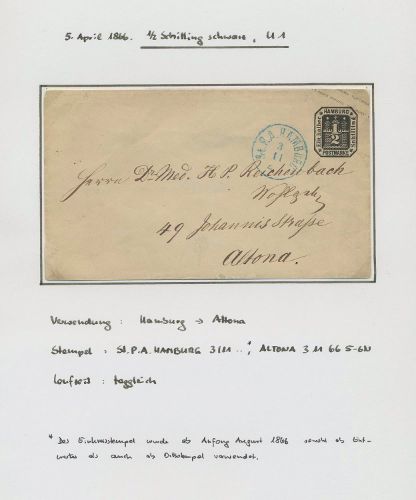 5. April 1866. 1/2 Schilling schwarz, U1
HAMBURG
1/2
POSTMARKE
St.P.A. HAMBURG
3
11
Herrn Dr Med. H P. Reichenbach
Wohlgeb
49 Johannis Straße
Altona.
Versendung : Hamburg → Altona
Stempel : St.P.A. HAMBURG 3/11 ..*, ALTONA 3 11 66 5-6N
Laufzeit : taggleich
* Der Einkreisstempel wurde ab Anfang August 1866 sowohl als Ent-
werter als auch als Ortsstempel verwendet.